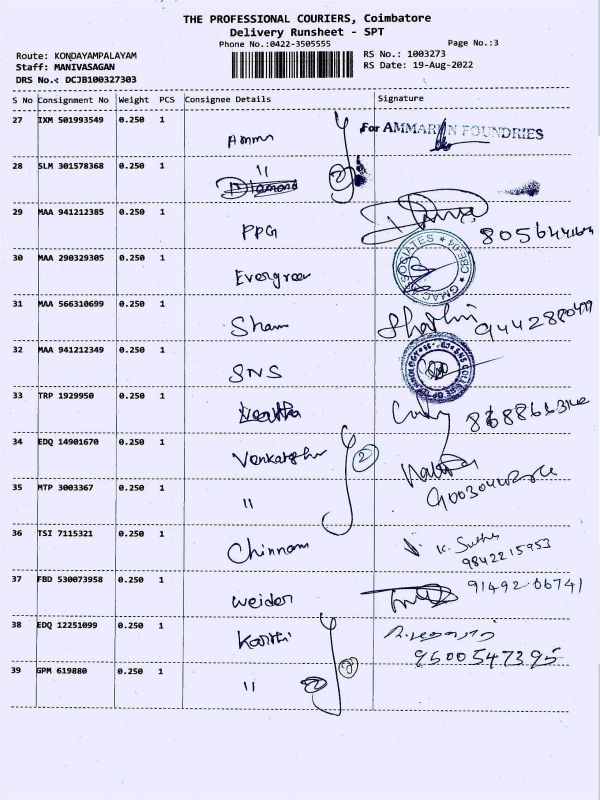 THE PROFESSIONAL COURIERS, Coimbatore
Delivery Runsheet - SPT
Phone No.:0422-3505555
Page No.:3
Route: KONDAYAMPALAYAM
Staff: MANIVASAGAN
DRS No.: DCJB100327303
RS No.: 1003273
RS Date: 19-Aug-2022
S No Consignment No Weight PCS Consignee Details Signature
27 IXM 501993549 0.250 1
For AMMARUN FOUNDRIES
Ammu
28 SLM 301578368 0.250 1
"
Diamond
2
29 MAA 941212385 0.250 1
PPG
30 MAA 290329305 0.250 1
Evergreen
GMAC ASSOCIATES * CBE-04 *
31 MAA 566310699 0.250 1
Sham
32 MAA 941212349 0.250 1
SNS
33 TRP 1929950 0.250 1
34 EDQ 14901670 0.250 1
2
35 MTP 3003367 0.250 1
"
36 TSI 7115321 0.250 1
Chinnam
K. Sutha
9842215953
37 FBD 530073958 0.250 1
Weider
91492 06741
38 EDQ 12251099 0.250 1
Karthi
9500547395
39 GPM 619880 0.250 1
"
2